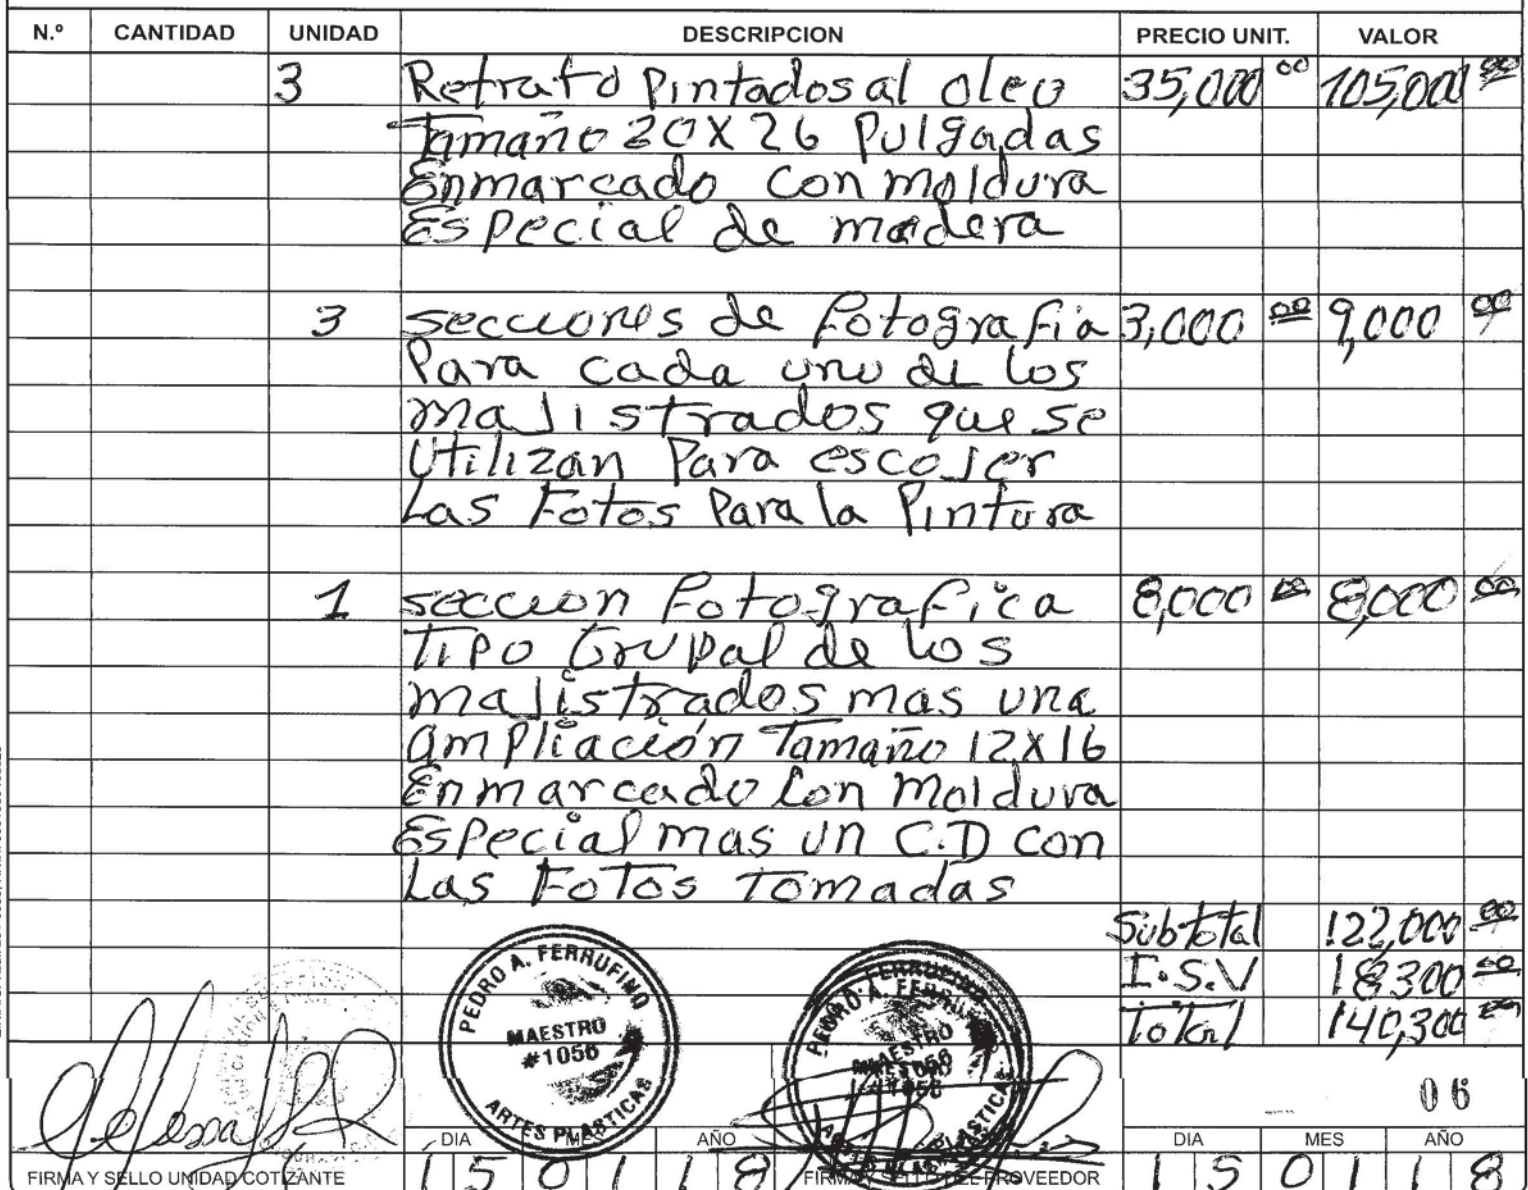 N.º CANTIDAD UNIDAD DESCRIPCION PRECIO UNIT. VALOR
3 Retrato Pintados al oleo 35,000 00 105,000 00
Tamaño 20X26 Pulgadas
Enmarcado con moldura
Especial de madera
3 secciones de fotografia 3,000 00 9,000 00
Para cada uno de los
majistrados que se
Utilizan Para escojer
Las Fotos Para la Pintura
1 seccion fotografica 8,000 00 8,000 00
Tipo Grupal de los
majistrados mas una
ampliación Tamaño 12X16
Enmarcado con Moldura
Especial mas un C.D con
Las Fotos Tomadas
Subtotal 122,000 00
I.S.V 18,300 00
Total 140,300 00
PEDRO A. FERRUFINO
MAESTRO
#1056
ARTES PLASTICAS
PEDRO A. FERRUFINO
MAESTRO
#1056
06
DIA MES AÑO DIA MES AÑO
FIRMA Y SELLO UNIDAD COTIZANTE 15 01 18 FIRMA Y SELLO DEL PROVEEDOR 15 01 18